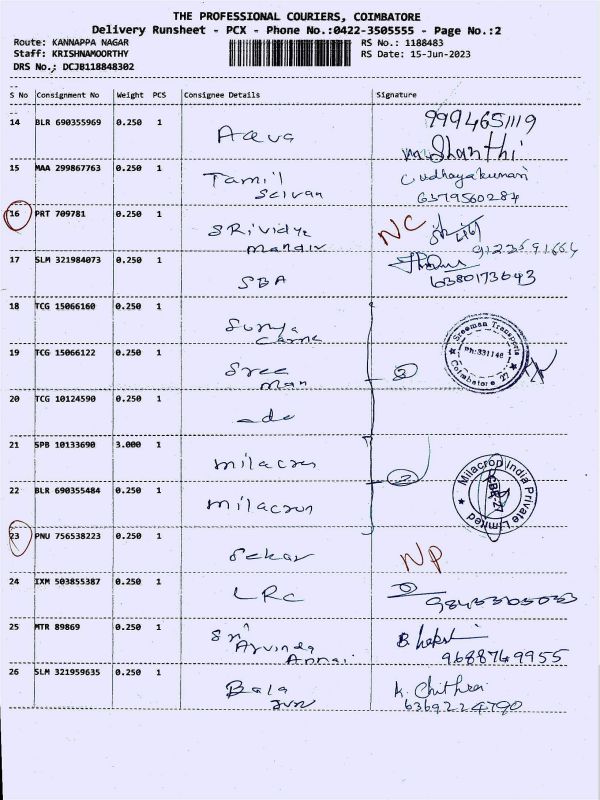 THE PROFESSIONAL COURIERS, COIMBATORE
Delivery Runsheet - PCX - Phone No.:0422-3505555 - Page No.:2
Route: KANNAPPA NAGAR RS No.: 1188483
Staff: KRISHNAMOORTHY RS Date: 15-Jun-2023
DRS No.: DCJB118848302
S No Consignment No Weight PCS Consignee Details Signature
14 BLR 690355969 0.250 1 Aqua 9994651119
Shanthi
15 MAA 299867763 0.250 1 Tamil Selvan C udhayakumari
6379560284
16 PRT 709781 0.250 1 SRividya mandir NC
9123591664
17 SLM 321984073 0.250 1 SBA
6380173693
18 TCG 15066160 0.250 1 Surya
Sreeman Transports
Ph:331146
Coimbatore 27
19 TCG 15066122 0.250 1 Sree man 3
20 TCG 10124590 0.250 1
21 SPB 10133690 3.000 1 milacron 2
Milacron India Private Limited
CBE-27
22 BLR 690355484 0.250 1 milacron
23 PNU 756538223 0.250 1 Sekar NP
24 IXM 503855387 0.250 1 LRC
25 MTR 89869 0.250 1 Sri Arvinda Annai
9688749955
26 SLM 321959635 0.250 1 Bala K. Chithra
6369224790